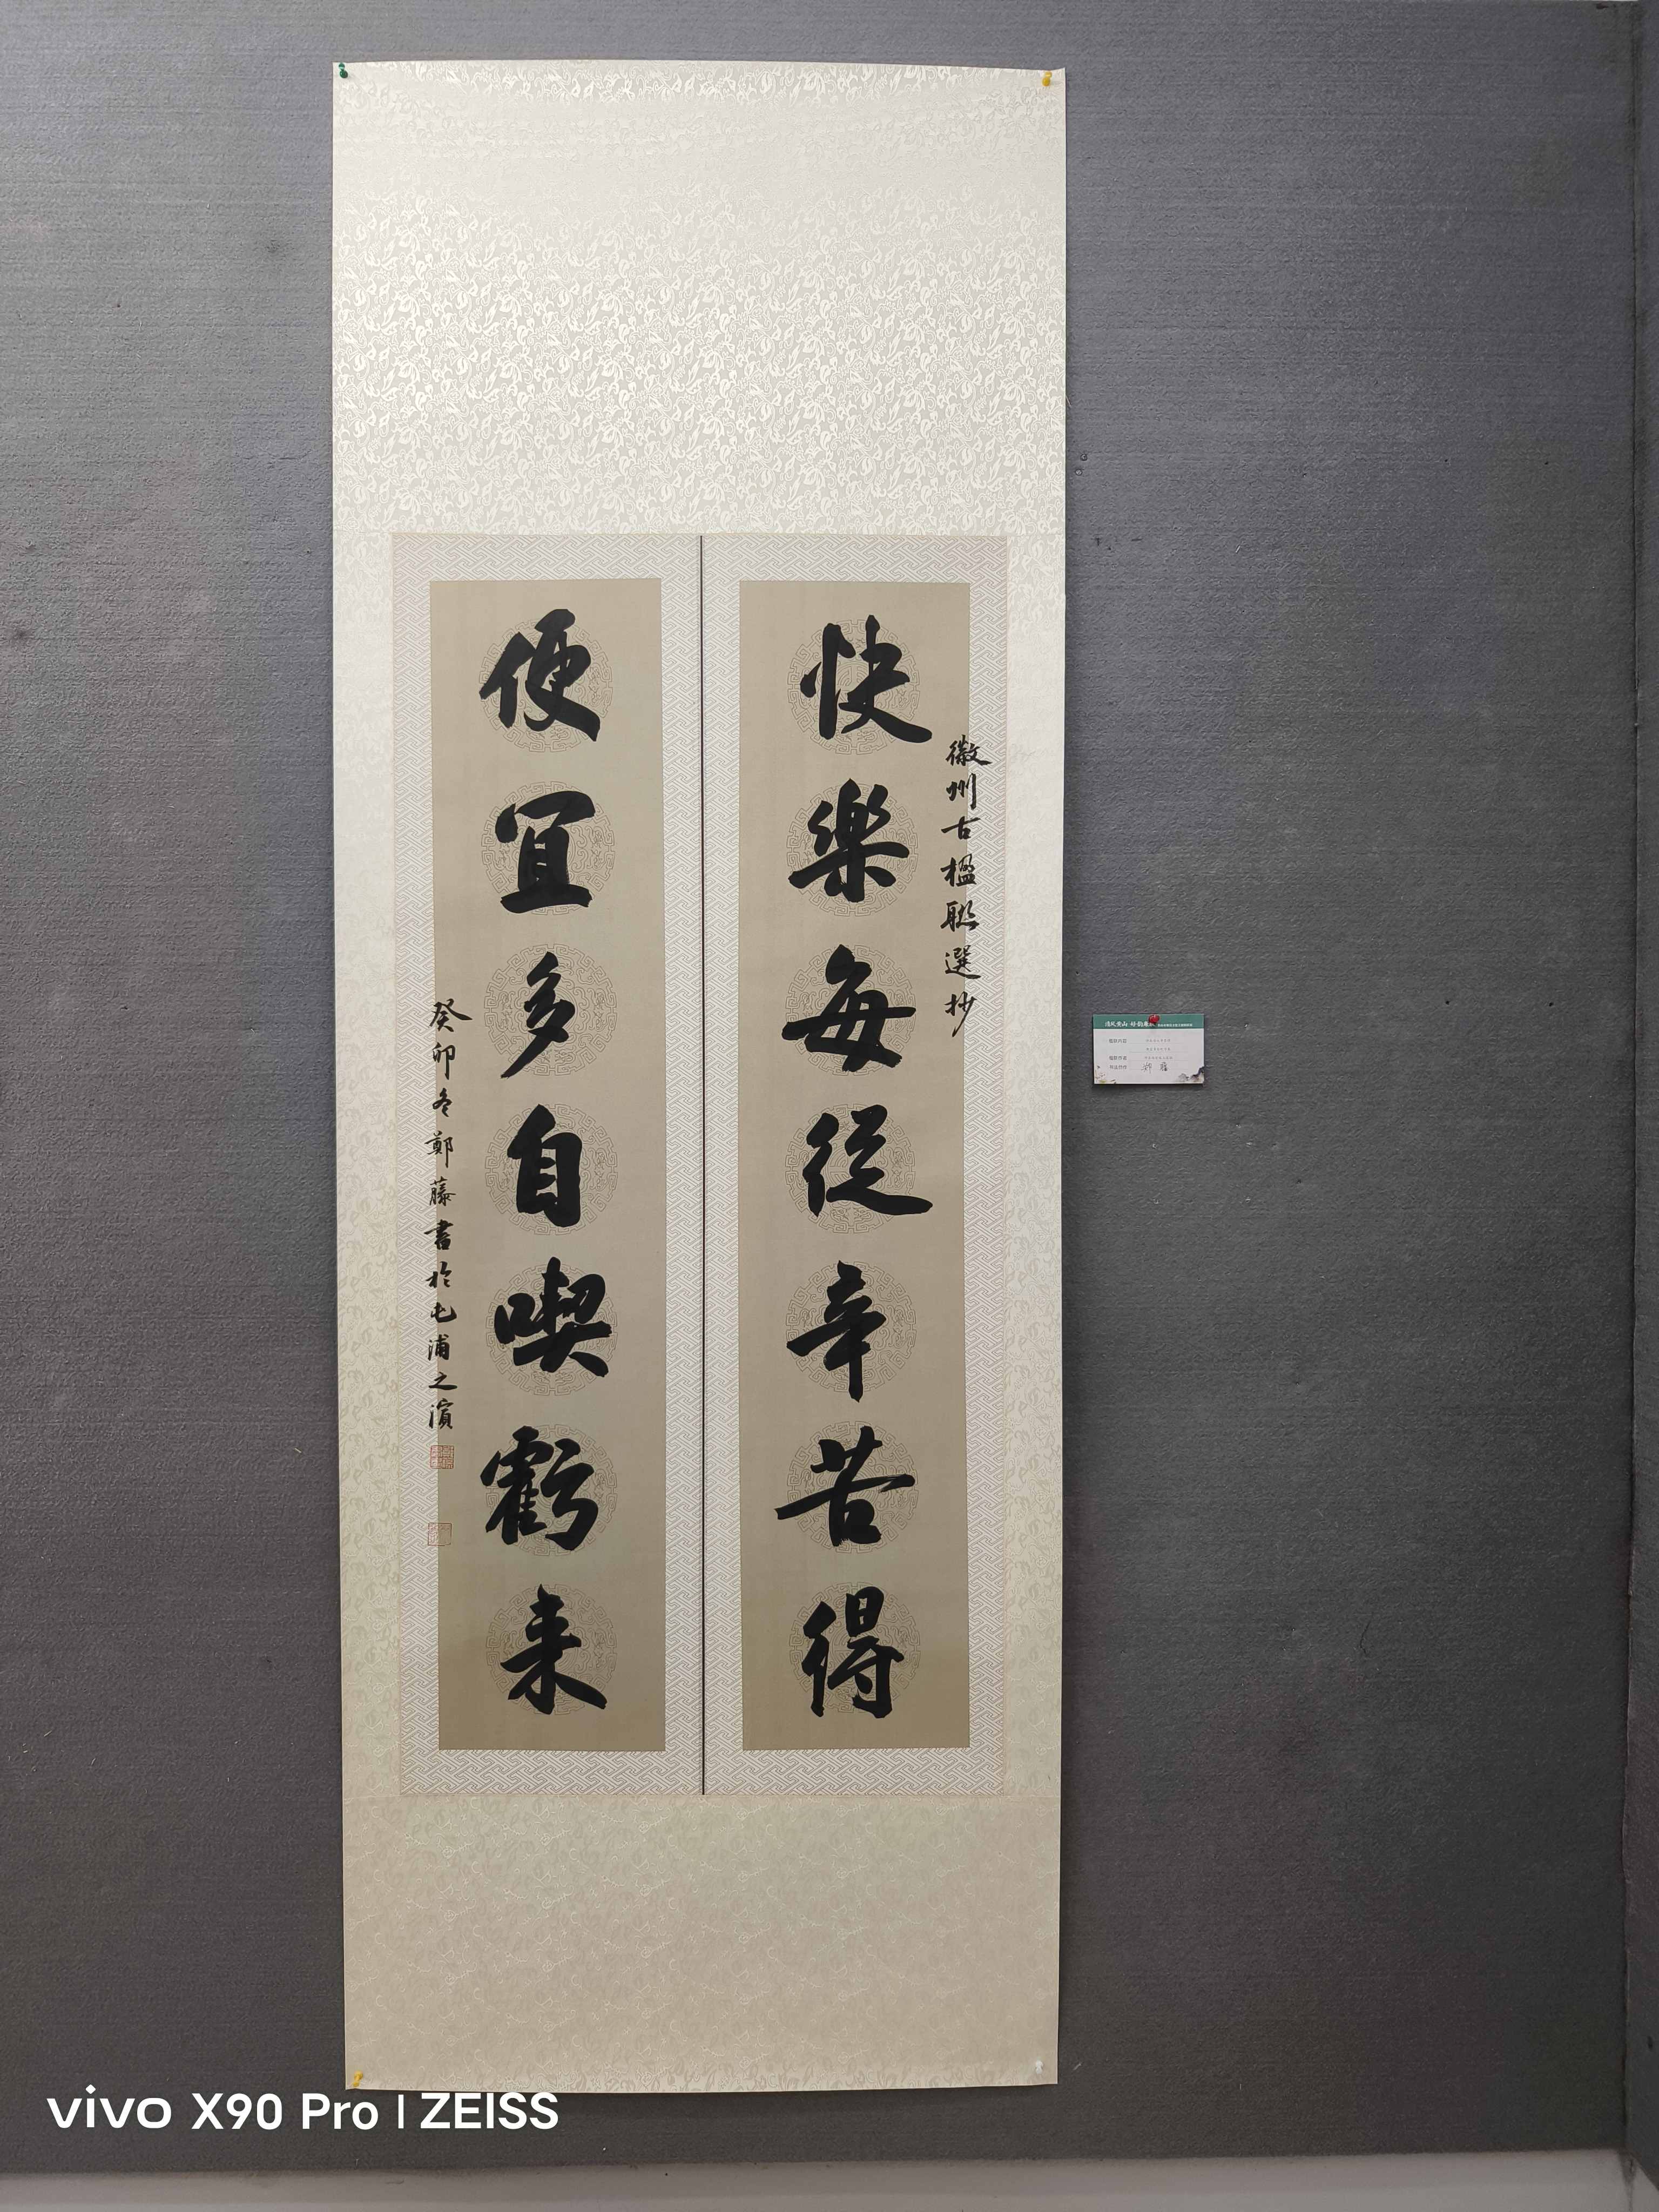 快樂每從辛苦得
徽州古楹聯選抄
便宜多自喫虧来
癸卯冬鄭藤書於屯浦之濱
vivo X90 Pro | ZEISS